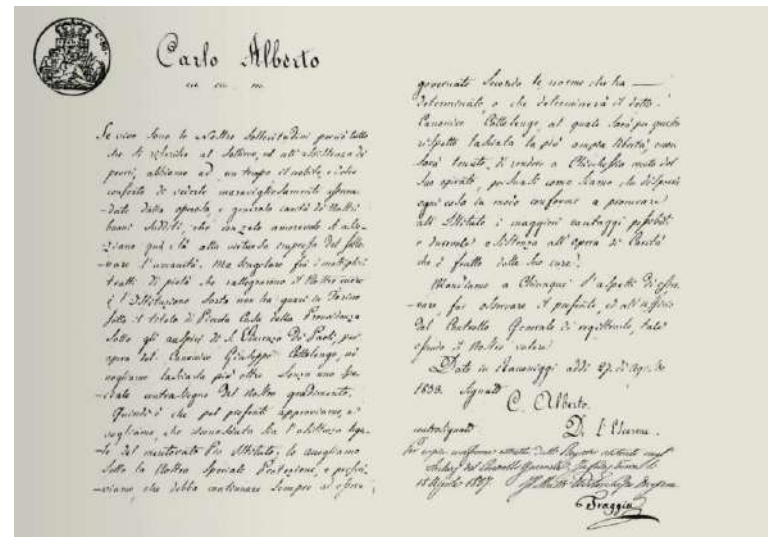 Carlo Alberto
Se vive sono le Nostre sollecitudini per tutto
che si riferisce al sollievo, ed all'assistenza de'
poveri, abbiamo ad un tempo il nobile, e dolce
conforto di vederle maravigliosamente
dalla operosa, e generosa carità de' Nostri
buoni sudditi, che con zelo amorevole si
ziano quà e là alla virtuosa impresa del solle-
vare l'umanità. Ma singolare fra i moltiplici
tratti di pietà che rallegrarono il Nostro cuore
è l'Istituzione sorta non ha guari in Torino
sotto il titolo di Piccola Casa della Provvidenza
sotto gli auspici di S. Vincenzo De Paoli, per
opera del Canonico Giuseppe Cottolengo, nè
vogliamo lasciarla più oltre senza uno spe-
ciale contrassegno del Nostro gradimento.
Quindi è che pel presente approviamo, e
vogliamo, che riconosciuta sia l'esistenza lega-
le del mentovato Pio Istituto; lo accogliamo
sotto la Nostra speciale Protezione, e prescri-
viamo, che debba continuare sempre ad essere
governato secondo le norme che ha
determinato, o che determinerà il detto
Canonico Cottolengo, al quale sarà per questo
rispetto lasciata la più ampia libertà, nè
sarà tenuto di rendere a Chichessia conto del
suo operato, persuasi come siamo che disporrà
ogni cosa in modo conforme a procurare
all'Istituto i maggiori vantaggi possibili
e durevole esistenza all'opera di Carità
che è frutto delle sue cure.
Mandiamo a Chiunque l'aspetti di osser-
vare, far osservare il presente, ed all'ufficio
del Controllo Generale di registrarlo, tale
essendo il Nostro volere.
Dato in Racconigi addì 27 di Agosto
1833. Segnato
C. Alberto.
contrassegnato
Per copia conforme estratta dal Registro
18 1887
Fraggia